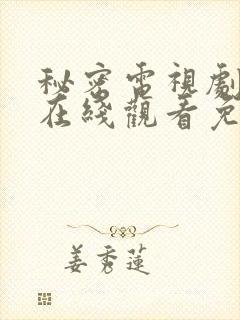 秘密電視劇
在綫觀看免
姜秀蓮